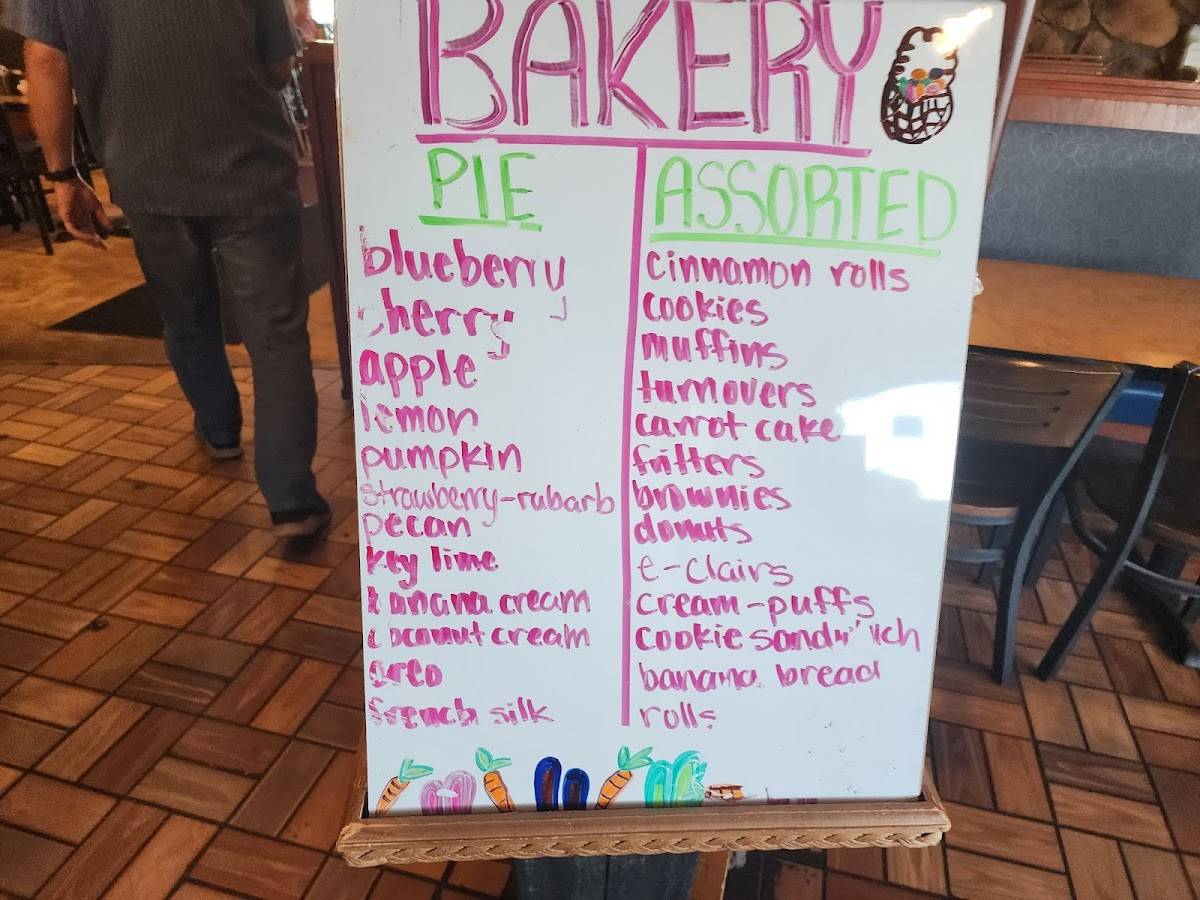 BAKERY
PIE
blueberry
cherry
apple
lemon
pumpkin
strawberry-rubarb
pecan
key lime
banana cream
coconut cream
oreo
french silk
ASSORTED
cinnamon rolls
cookies
muffins
turnovers
carrot cake
fritters
brownies
donuts
e-clairs
cream-puffs
cookie sandwich
banana bread
rolls